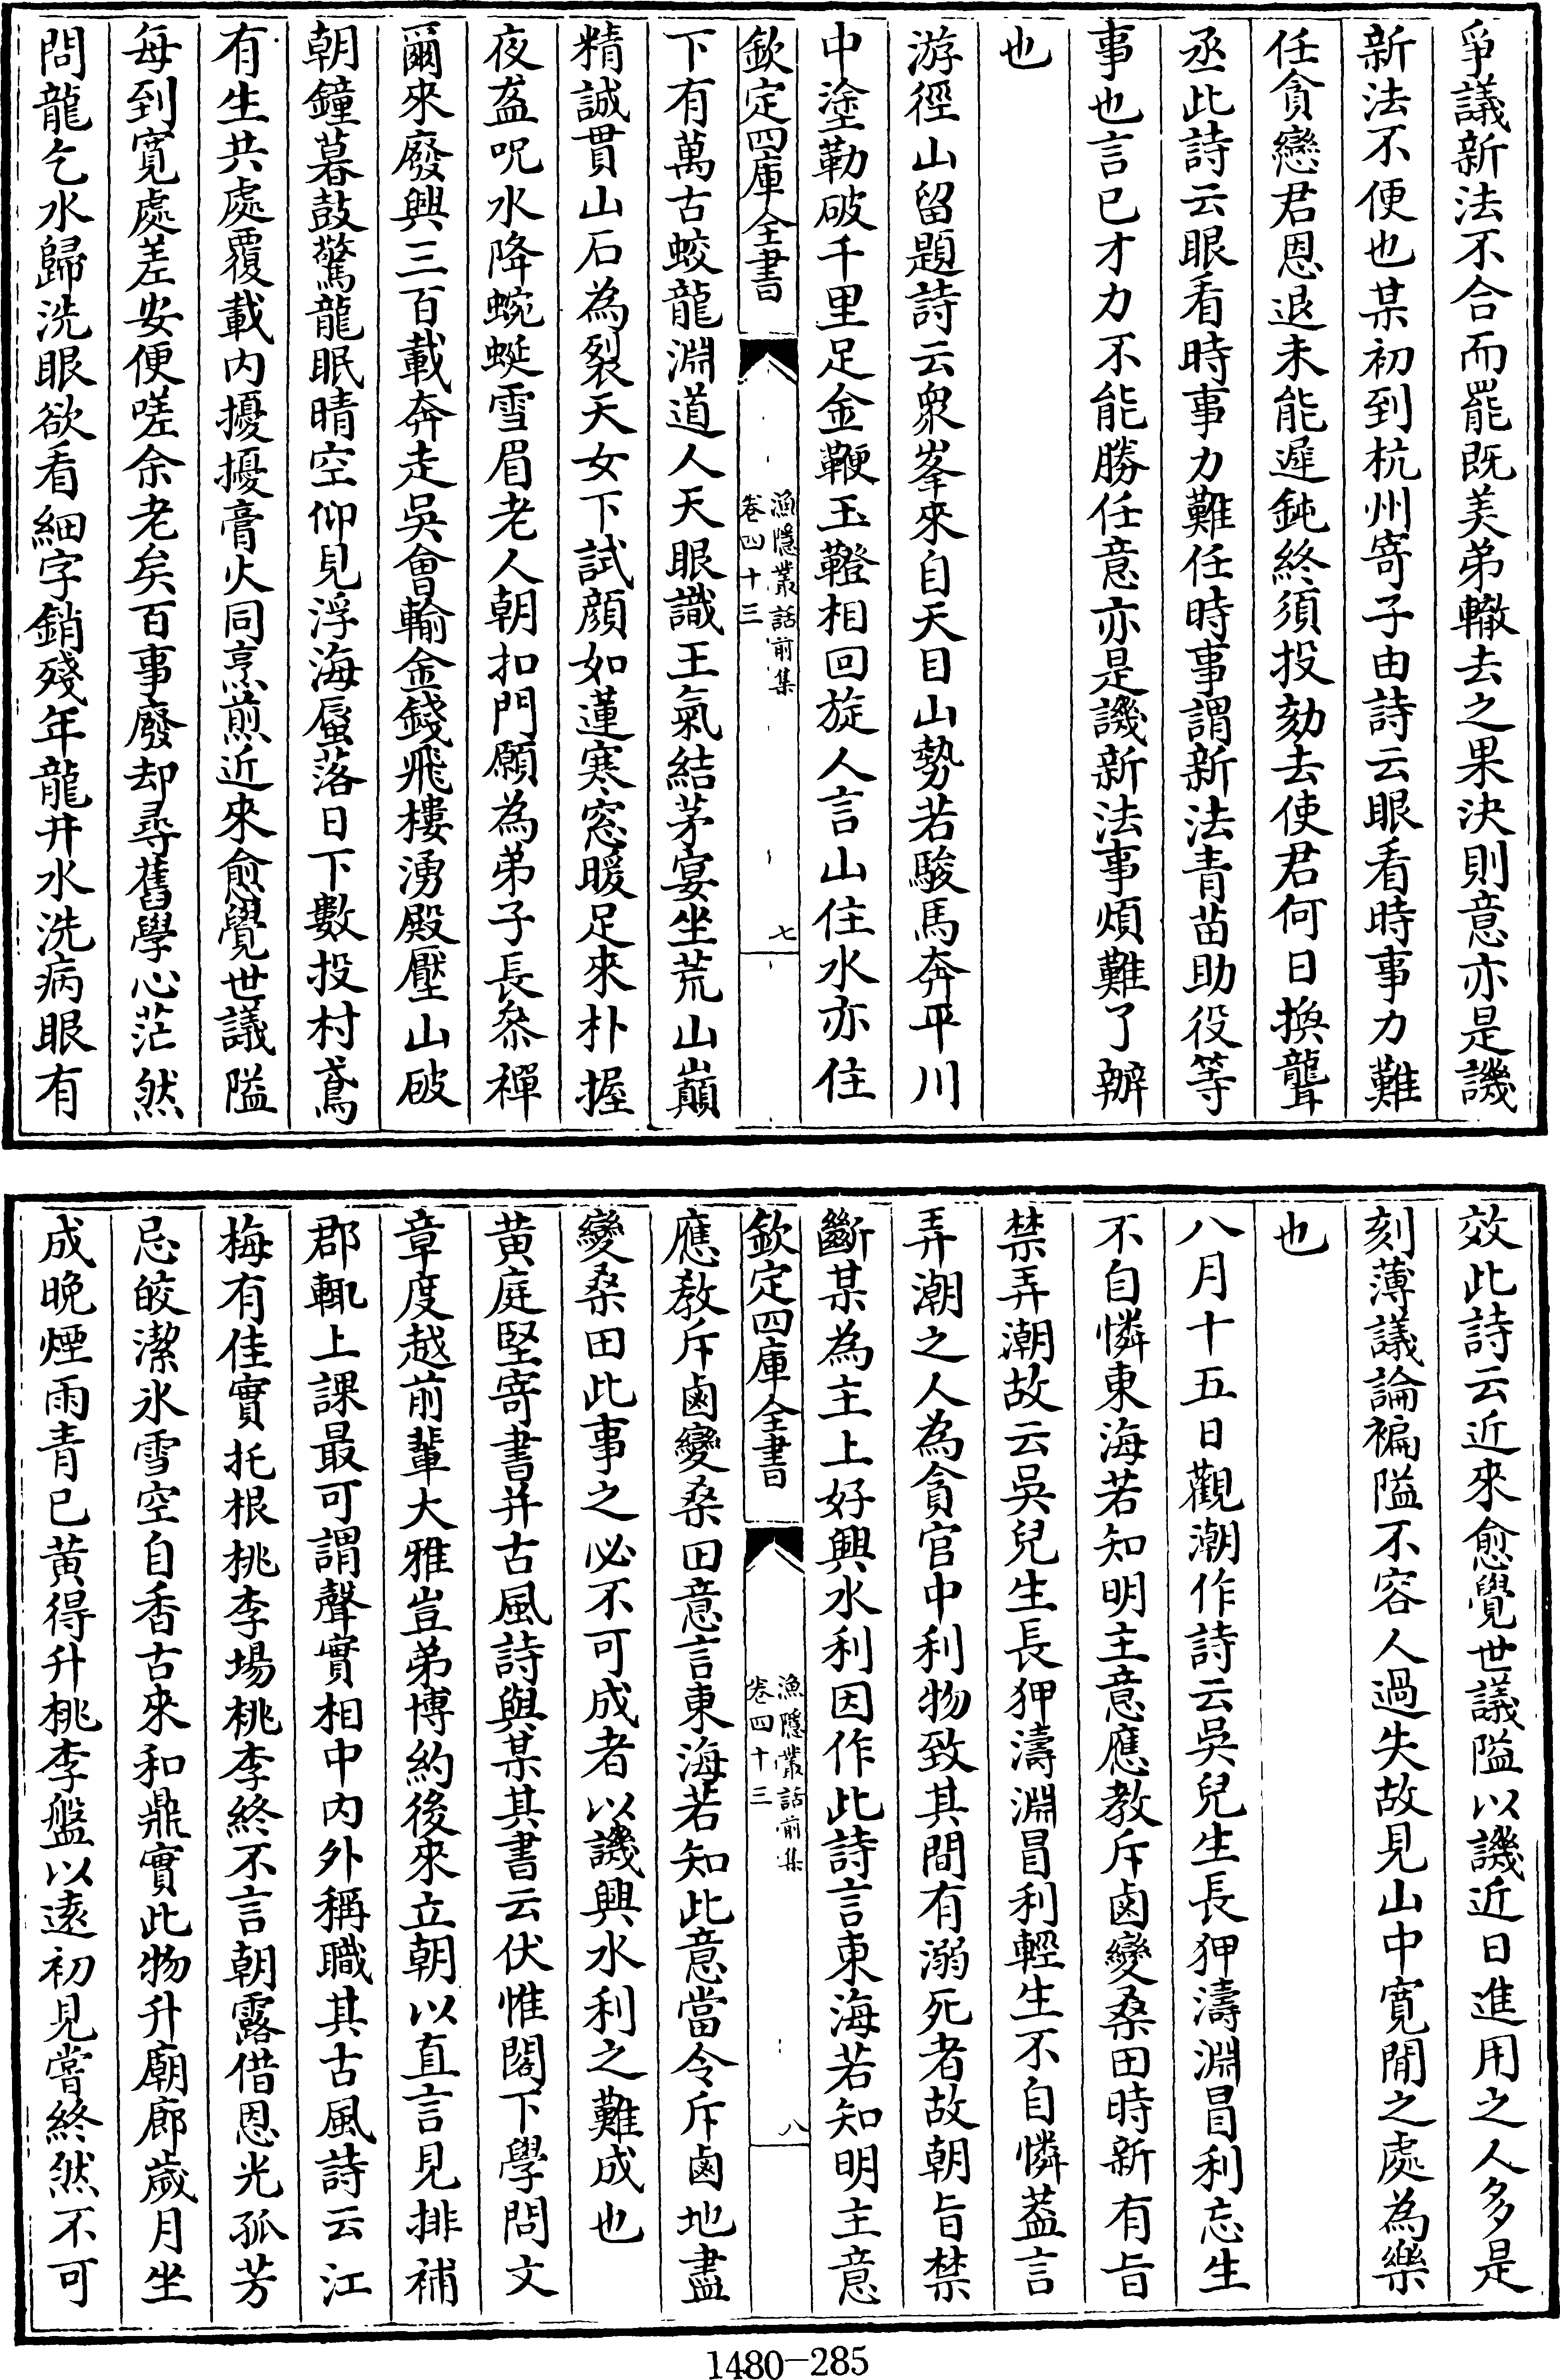 爭議新法不合而罷既美弟轍去之果決則意亦是譏
新法不便也某初到杭州寄子由詩云眼看時事力難
任貪戀君恩退未能遲鈍終須投劾去使君何日換聾
丞此詩云眼看時事力難任時事謂新法青苗助役等
事也言已才力不能勝任意亦是譏新法事煩難了辦
也
游徑山留題詩云衆峯來自天目山勢若駿馬奔平川
中塗勒破千里足金鞭玉鞚相回旋人言山住水亦住
欽定四庫全書
漁隱叢話前集
卷四十三
七
下有萬古蛟龍淵道人天眼識王氣結茅宴坐荒山巔
精誠貫山石為裂天女下試顔如蓮寒窓暖足來朴握
夜盋呪水降蜿蜒雪眉老人朝扣門願為弟子長叅禪
爾來廢興三百載奔走吳會輸金錢飛樓湧殿壓山破
朝鐘暮鼓驚龍眠晴空仰見浮海蜃落日下數投村鳶
有生共處覆載内擾擾膏火同烹煎近來愈覺世議隘
每到寛處差安便嗟余老矣百事廢却尋舊學心茫然
問龍乞水歸洗眼欲看細字銷殘年龍井水洗病眼有
效此詩云近來愈覺世議隘以譏近日進用之人多是
刻薄議論褊隘不容人過失故見山中寛閒之處為樂
也
八月十五日觀潮作詩云吳兒生長狎濤淵冒利忘生
不自憐東海若知明主意應教斥鹵變桑田時新有旨
禁弄潮故云吳兒生長狎濤淵冒利輕生不自憐葢言
弄潮之人為貪官中利物致其間有溺死者故朝旨禁
斷某為主上好興水利因作此詩言東海若知明主意
欽定四庫全書
漁隱叢話前集
卷四十三
八
應教斥鹵變桑田意言東海若知此意當令斥鹵地盡
變桑田此事之必不可成者以譏興水利之難成也
黄庭堅寄書并古風詩與某其書云伏惟閣下學問文
章度越前輩大雅豈弟博約後來立朝以直言見排補
郡輒上課最可謂聲實相中内外稱職其古風詩云江
梅有佳實托根桃李場桃李終不言朝露借恩光孤芳
忌皎潔氷雪空自香古來和鼎實此物升廟廊歲月坐
成晚煙雨青已黄得升桃李盤以遠初見嘗終然不可
1480-285